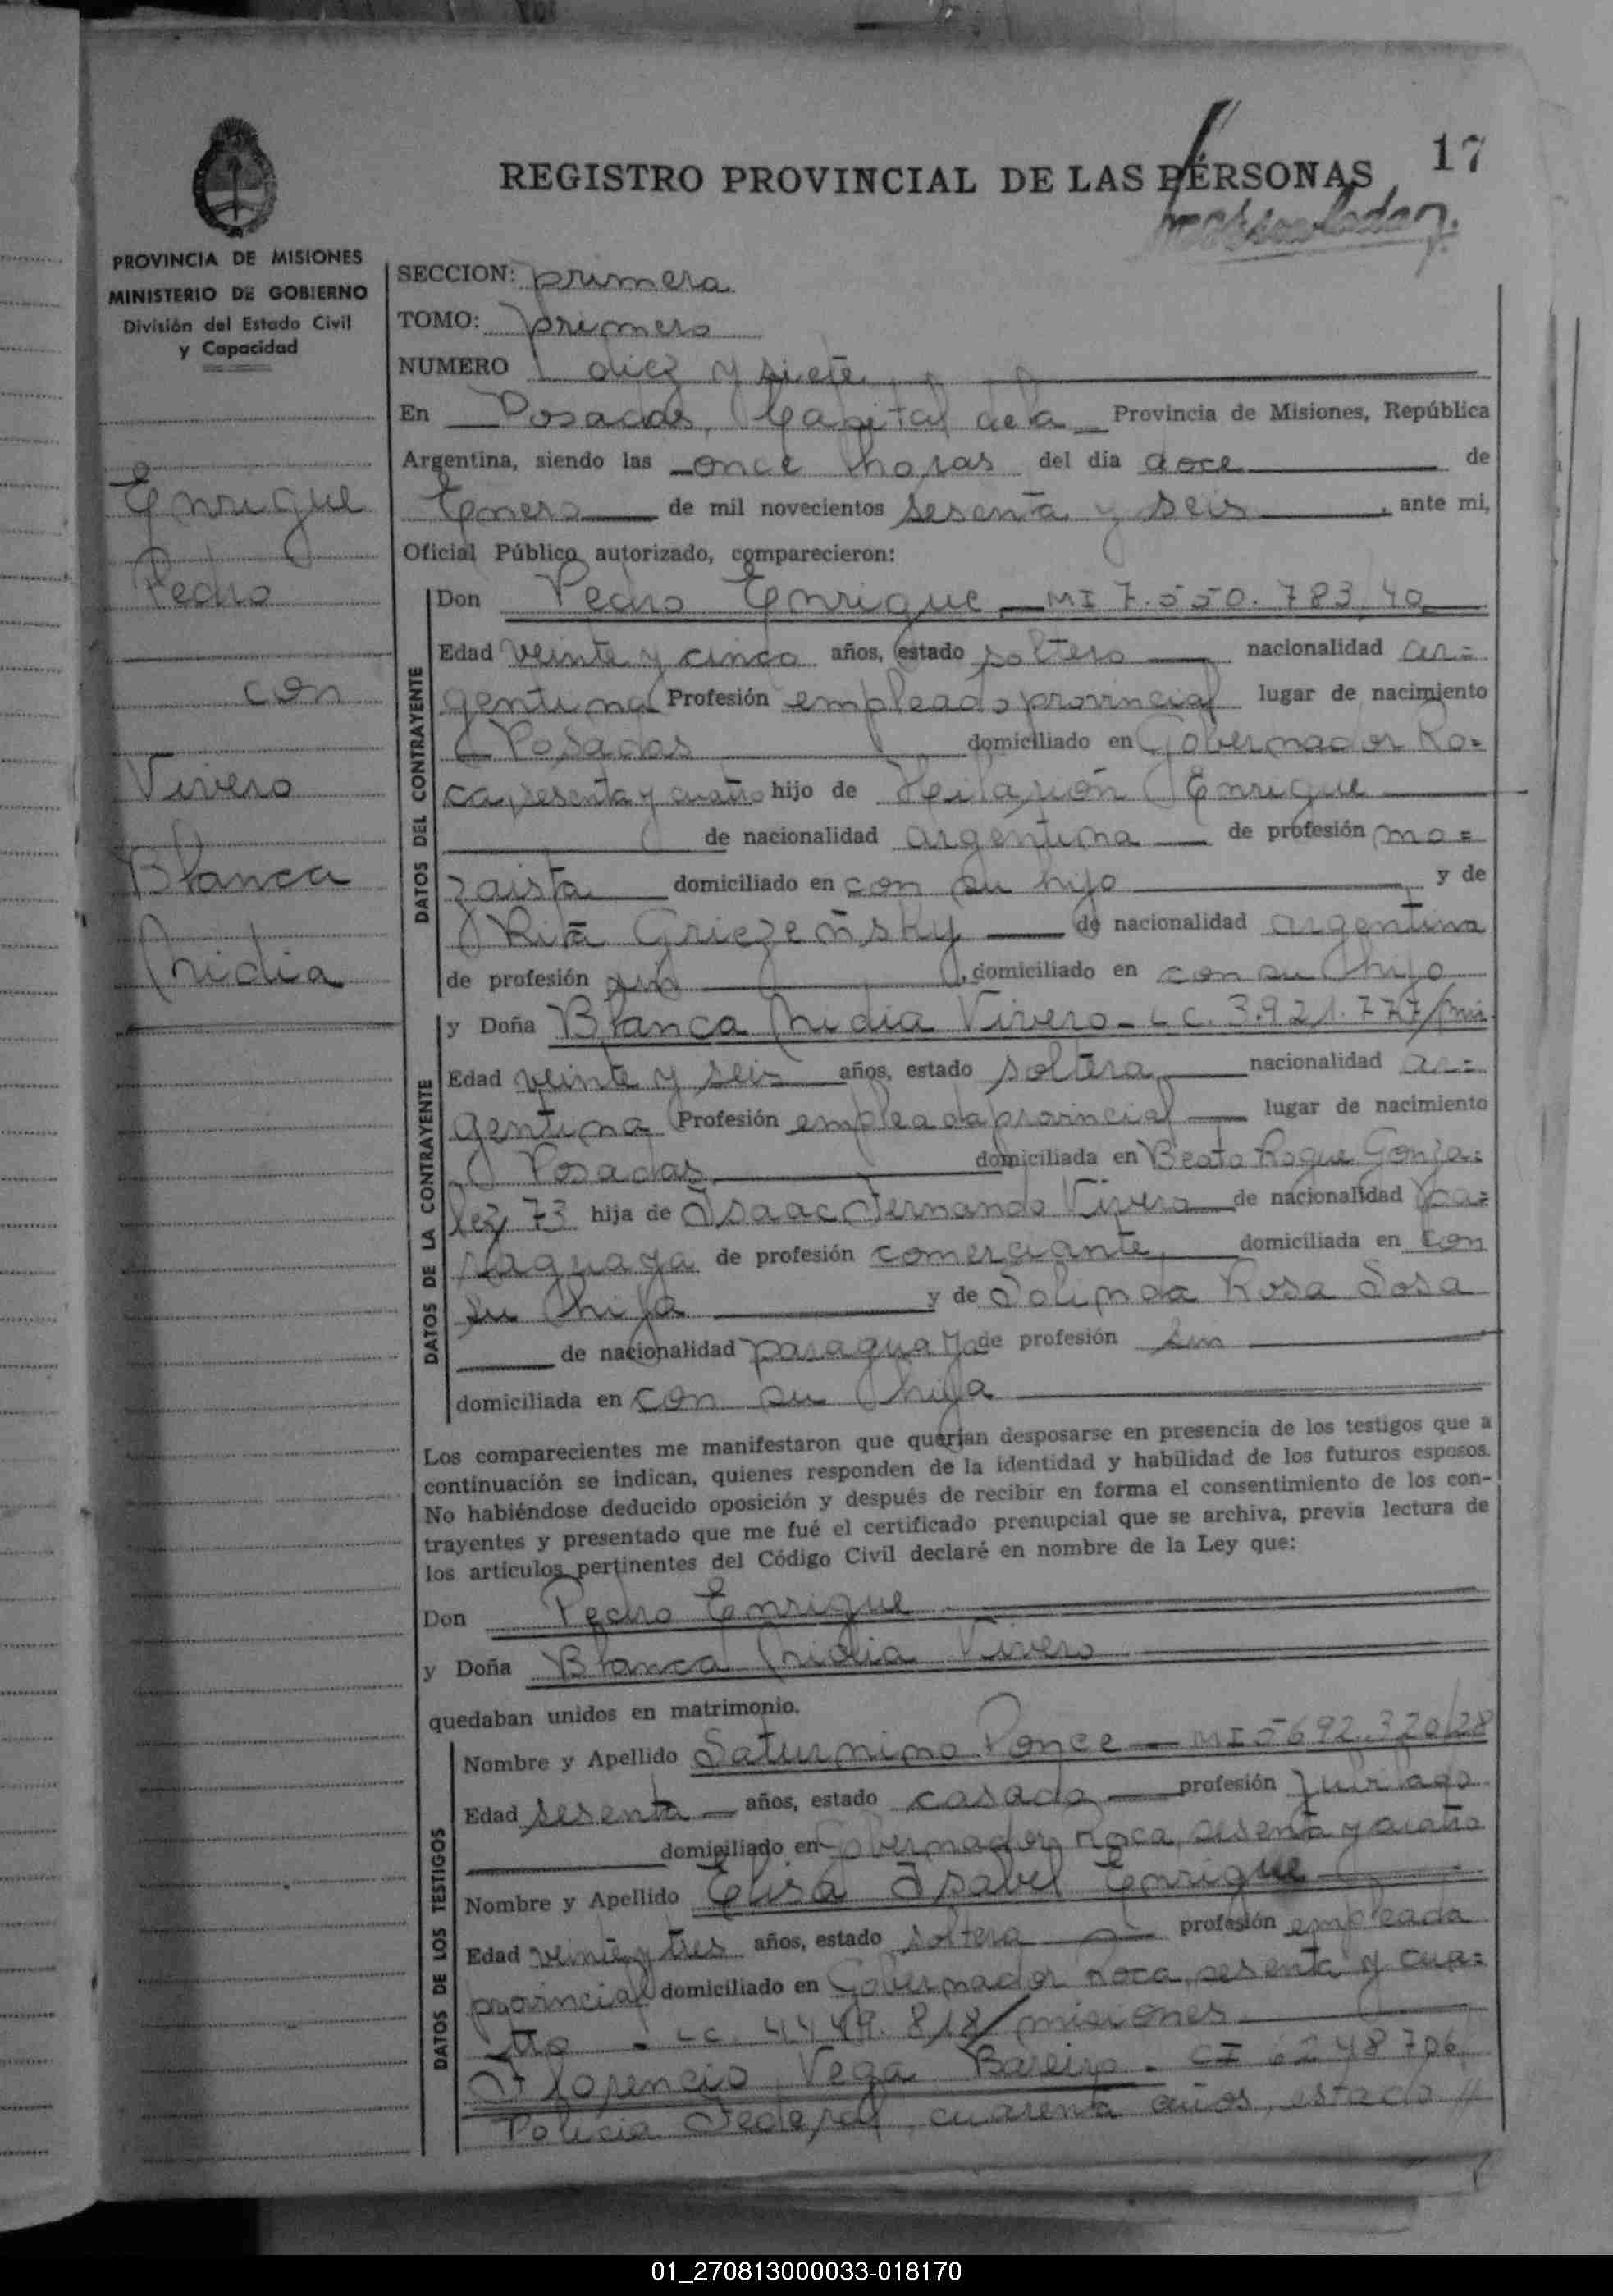 17
REGISTRO PROVINCIAL DE LAS PERSONAS
PROVINCIA DE MISIONES
MINISTERIO DE GOBIERNO
División del Estado Civil
y Capacidad
Enrique
Pedro
con
Vivero
Blanca
Nidia
SECCION: primera
TOMO: primero
NUMERO diez y siete
En Posadas, Capital de la Provincia de Misiones, República
Argentina, siendo las once horas del día doce de
Enero de mil novecientos sesenta y seis, ante mi,
Oficial Público autorizado, comparecieron:
DATOS DEL CONTRAYENTE
Don Pedro Enrique MI 7.550.783,40
Edad veinte y cinco años, estado soltero nacionalidad ar=
gentina Profesión empleado provincial lugar de nacimiento
Posadas domiciliado en Gobernador Ro=
ca, sesenta y cuatro hijo de Heilarión Enrique
de nacionalidad argentina de profesión mo=
zaista domiciliado en con su hijo y de
Rita Griezeñsky de nacionalidad argentina
de profesión sin, domiciliado en con su hijo
DATOS DE LA CONTRAYENTE
y Doña Blanca Nidia Vivero - LC. 3.921.777/mis.
Edad veinte y seis años, estado soltera nacionalidad ar=
gentina Profesión empleada provincial lugar de nacimiento
Posadas domiciliada en Beato Roque Gonza=
lez 73 hija de Isaac Fernando Vivero de nacionalidad pa=
raguaya de profesión comerciante, domiciliada en con
su hija y de Solinda Rosa Sosa
de nacionalidad paraguaya de profesión sin
domiciliada en con su hija
Los comparecientes me manifestaron que querían desposarse en presencia de los testigos que a
continuación se indican, quienes responden de la identidad y habilidad de los futuros esposos.
No habiéndose deducido oposición y después de recibir en forma el consentimiento de los con-
trayentes y presentado que me fué el certificado prenupcial que se archiva, previa lectura de
los artículos pertinentes del Código Civil declaré en nombre de la Ley que:
Don Pedro Enrique
y Doña Blanca Nidia Vivero
quedaban unidos en matrimonio.
DATOS DE LOS TESTIGOS
Nombre y Apellido Saturnino Ponce - MI 5692.320/28
Edad sesenta años, estado casado profesión Jubilado
domiciliado en Gobernador Roca, sesenta y cuatro
Nombre y Apellido Elisa Isabel Enrique
Edad veinte y tres años, estado soltera profesión empleada
provincial domiciliado en Gobernador Roca, sesenta y cua=
tro - LC. 4449.818/misiones
Florencio Vega Bareiro - CI 6248706
Policia Federal, cuarenta años, estado //
01_270813000033-018170